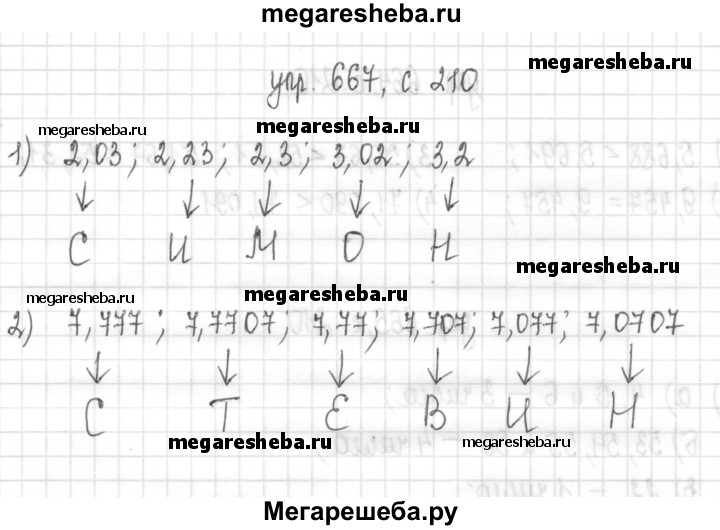 megaresheba.ru
упр. 667, с. 210
megaresheba.ru
megaresheba.ru
megaresheba.ru
1) 2,03; 2,23; 2,3; 3,02; 3,2
С И М О Н
megaresheba.ru
megaresheba.ru
megaresheba.ru
2) 7,777; 7,7707; 7,77; 7,707; 7,077; 7,0707
С Т Е В И Н
megaresheba.ru
megaresheba.ru
Мегарешеба.ру